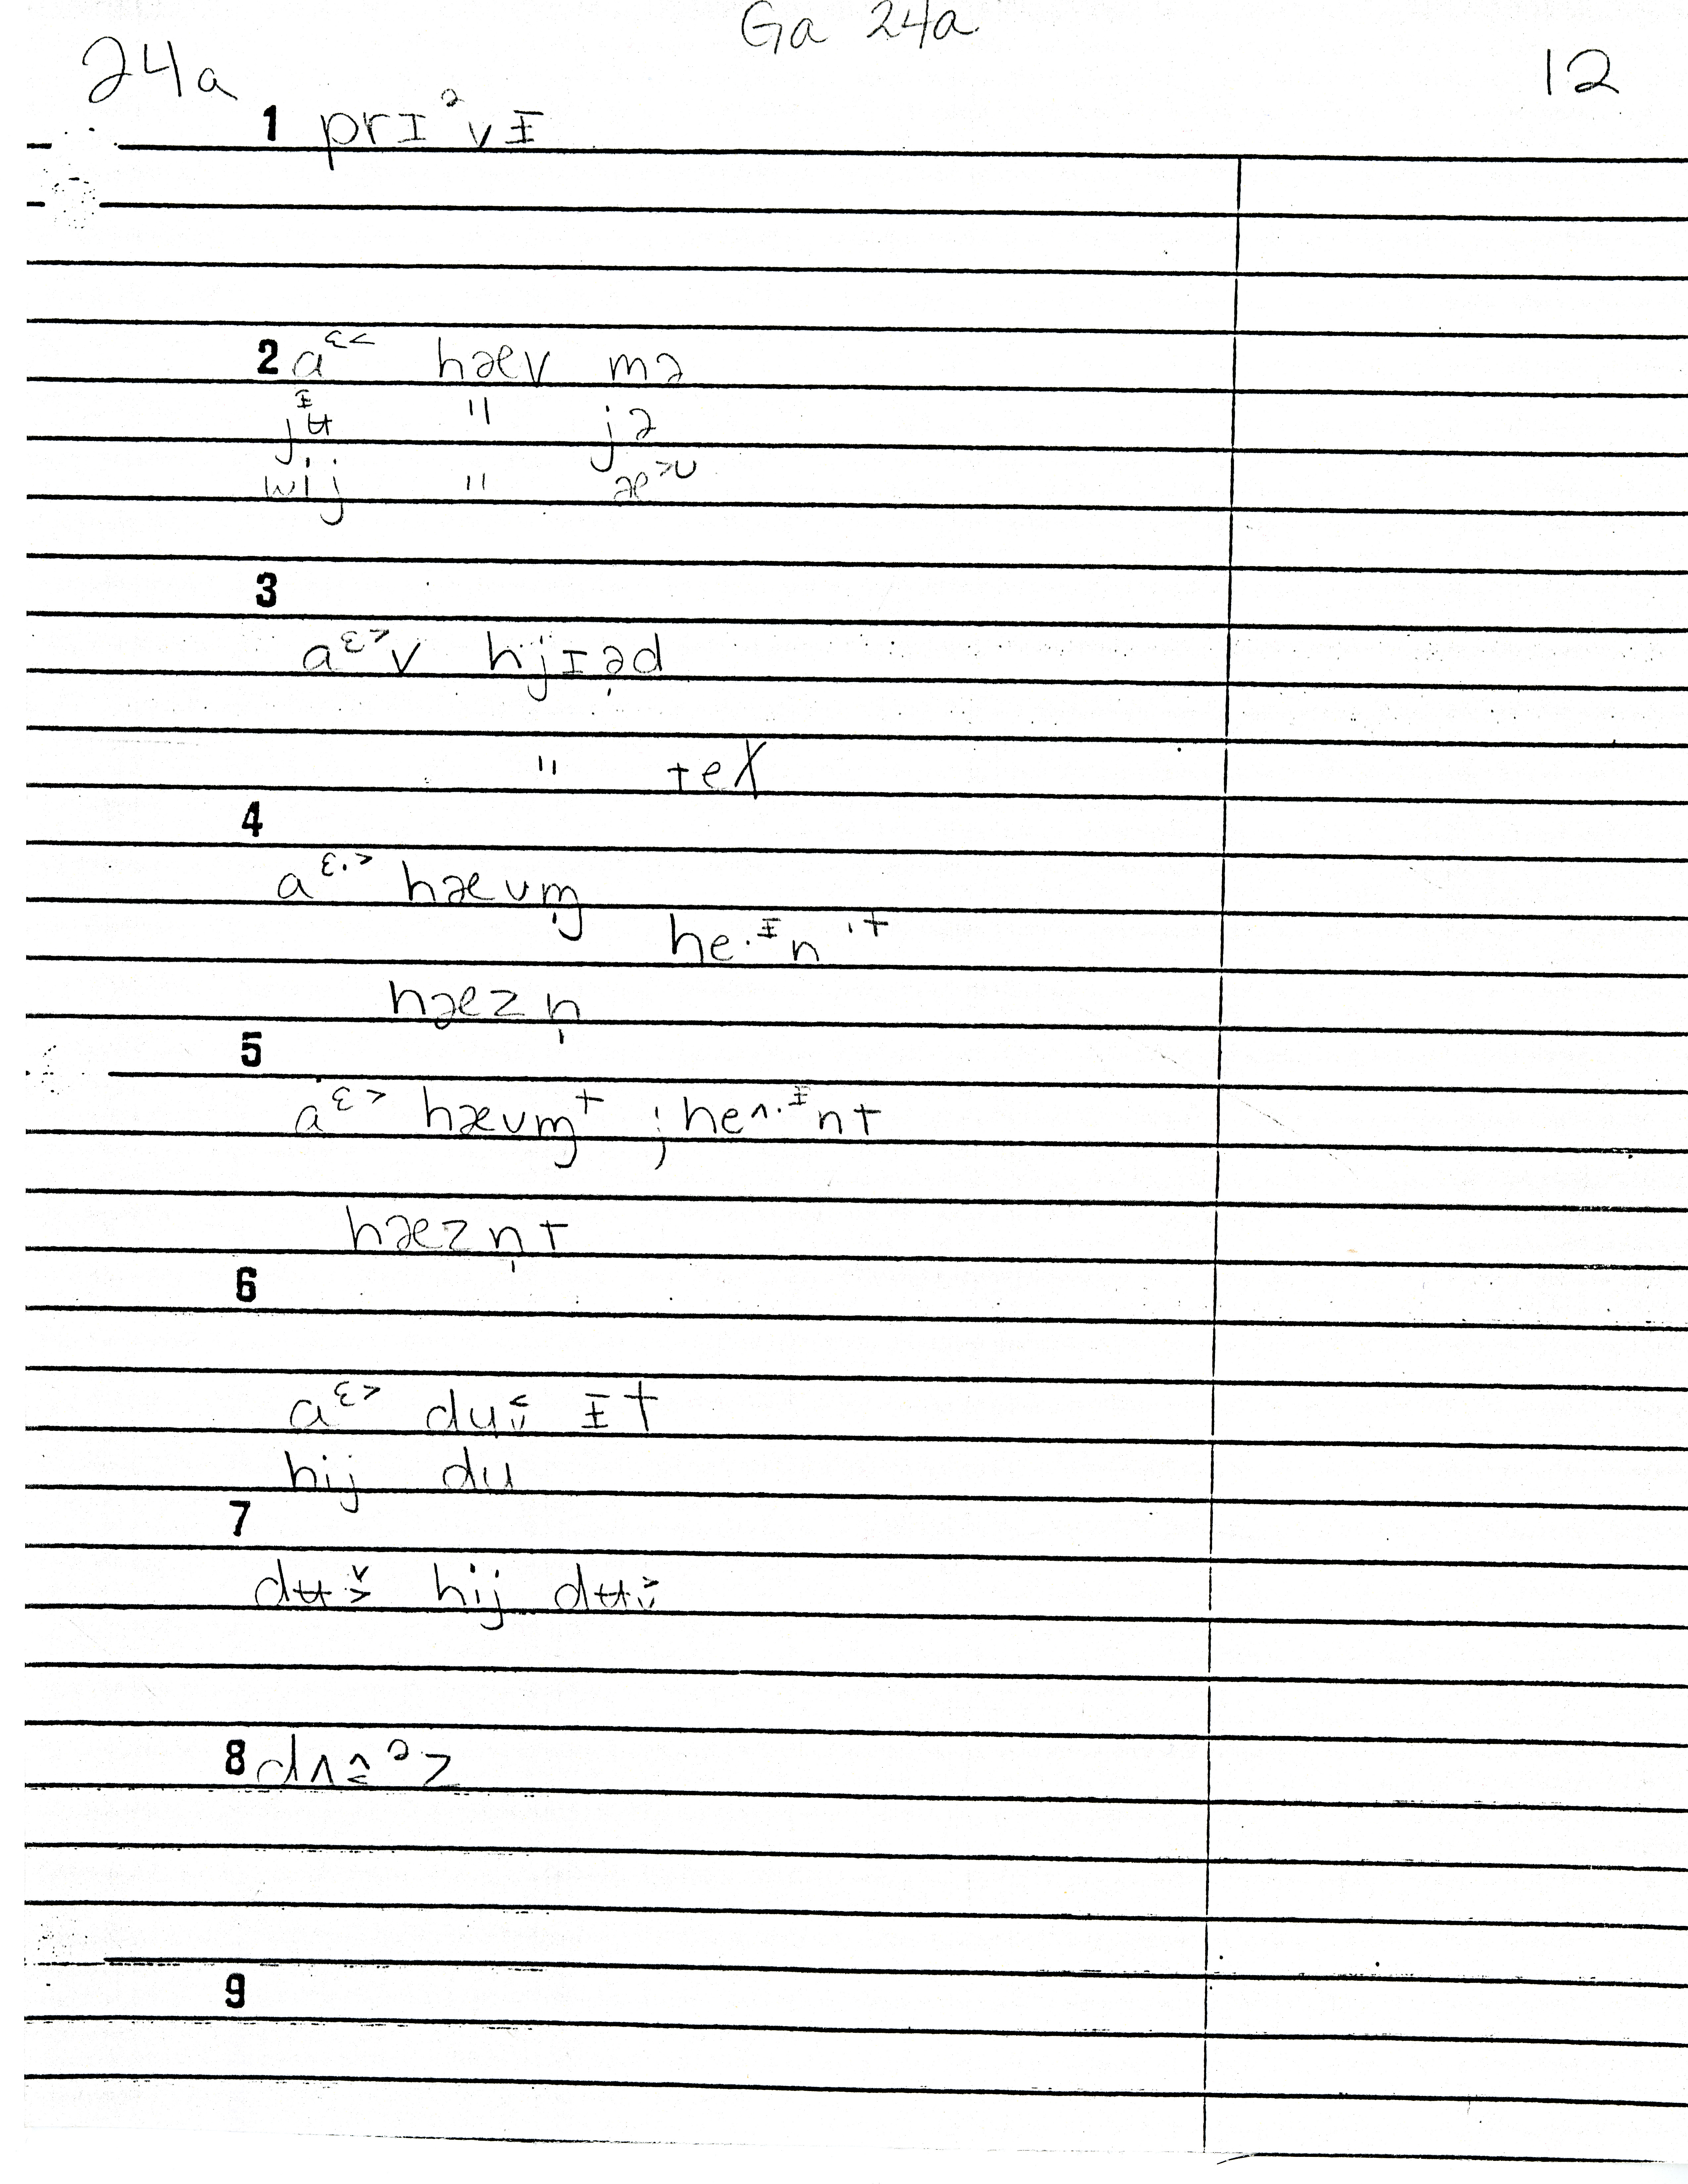 Ga 24a
24a
12
1 prɪᵊvɪ̵
2 aᵋ˂ hæv mə
jᵻʉ " jə
wij " æ˃ᴜ
3
aᵋ˃v hjɪə̩d
" teX
4
aᵋ·˃ hævm̩
he·ᵻn ˈᵗ
hæzn̩
5
aᵋ˃ hævm̩ᵗ ; heʌ·ᵻnt
hæzn̩t
6
aᵋ˃ du ɪ̵t
hij du
7
dʉ hij dʉ
8 dʌᵊz
9